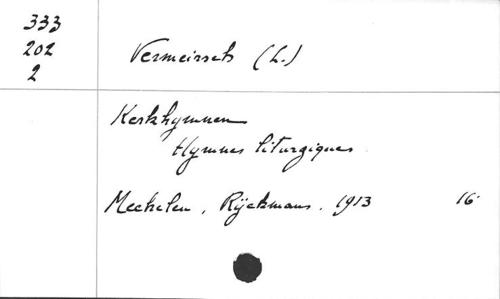 333
202
2
Vermeirsch (L.)
Kerkhymnen
Hymnes liturgiques.
Mechelen, Ryckmans. 1913 16°